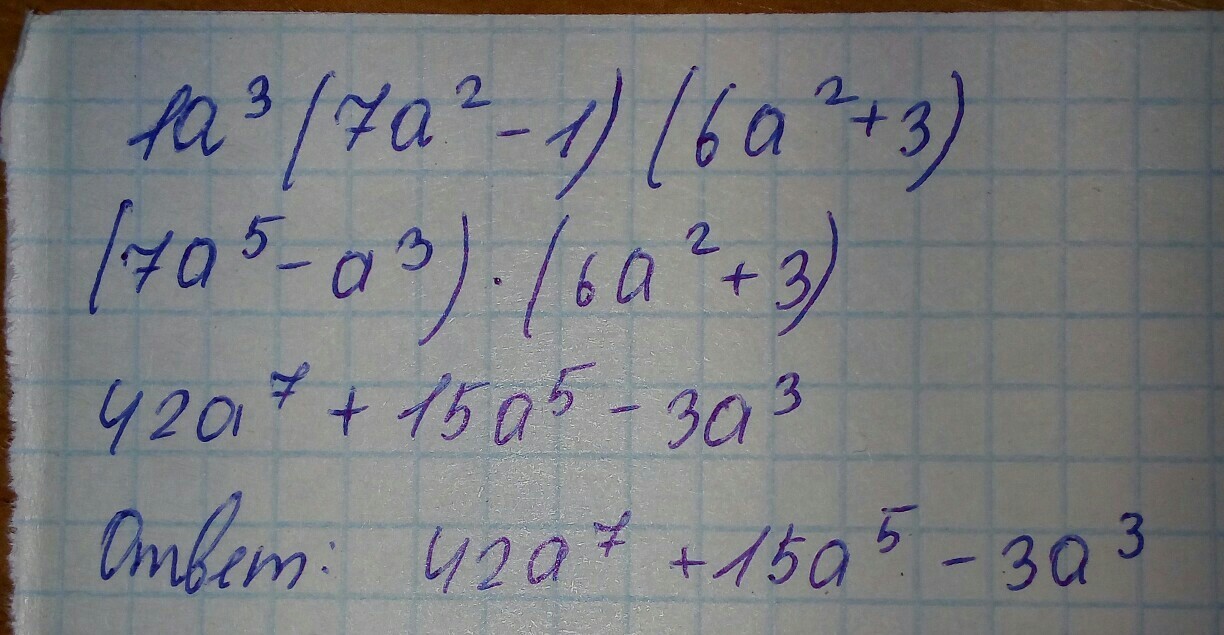 1a³(7a²-1)(6a²+3)
(7a⁵-a³)·(6a²+3)
42a⁷+15a⁵-3a³
Ответ: 42a⁷+15a⁵-3a³